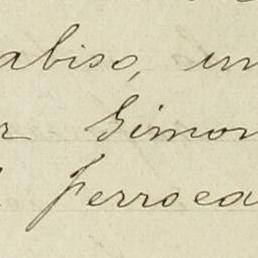 abiso, un
r Simon
Ferroca